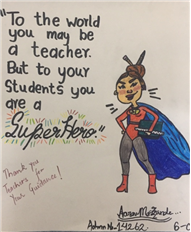 "To the world
you may be
a teacher.
But to your
Students you
are a
SuperHero."
Thank you
Teachers for
Your Guidance!
Admn No. 14262
6-